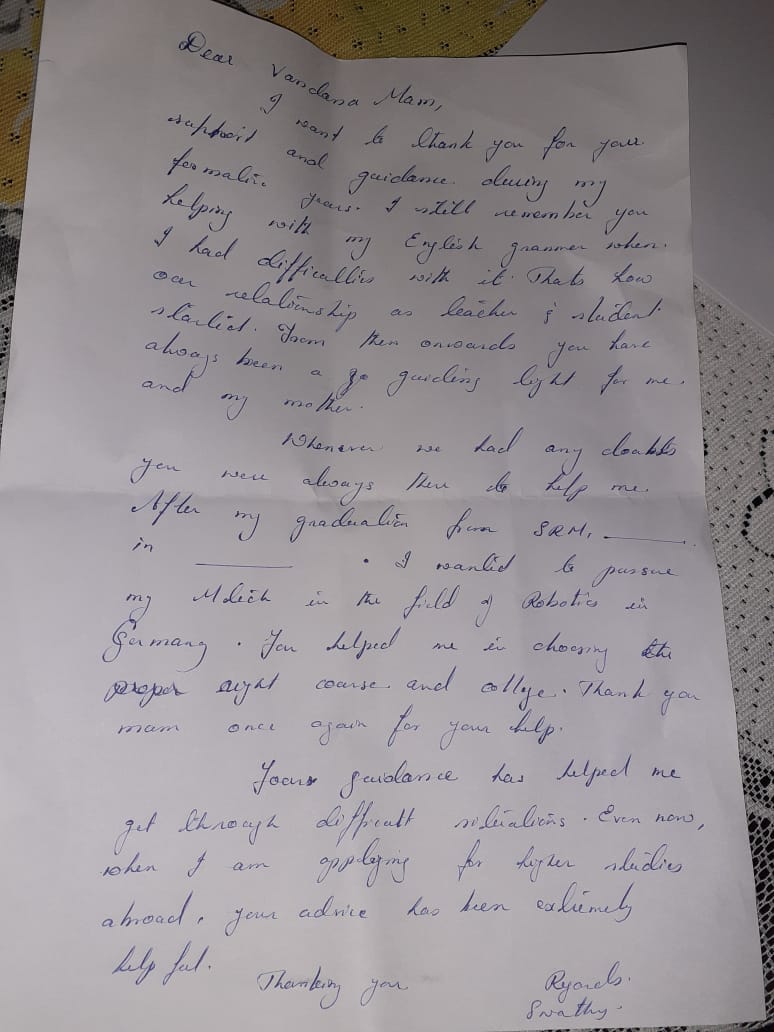 Dear Vandana Mam,
I want to thank you for your
support and guidance during my
formative years. I still remember you
helping with my English grammer when
I had difficulties with it. Thats how
our relationship as teacher & student
started. From then onwards you have
always been a go guiding light for me.
and my mother.
Whenever we had any doubts
you were always there to help me.
After my graduation from SRM, ______
in ______ . I wanted to pursue
my Mtech in the field of Robotics in
Germany. You helped me in choosing the
proper right course and collge. Thank you
mam once again for your help.
Your guidance has helped me
get through difficult situations. Even now,
when I am applying for higher studies
abroad, your advice has been extremely
helpful.
Thanking you
Regards.
Swathy.